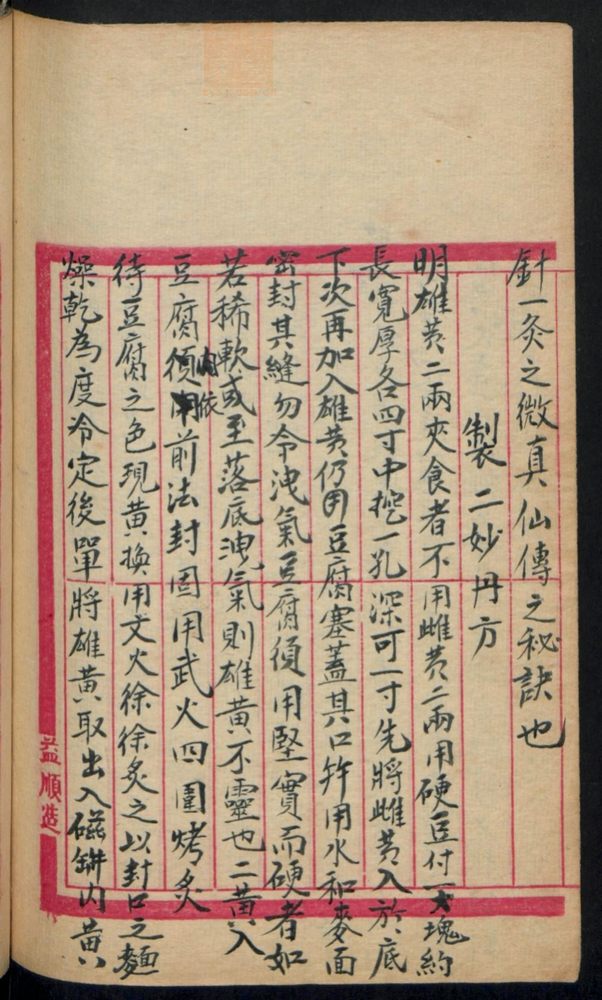 針一灸之微真仙傳之秘訣也
製二妙丹方
明雄黄二兩夾食者不用雌黄二兩用硬豆付一大塊約
長寬厚各四寸中挖一孔深可一寸先將雌黄入於底
下次再加入雄黄仍用豆腐塞蓋其口幷用水和麥面
密封其縫勿令洩氣豆腐須用堅實而硬者如
若稀軟或至落底洩氣則雄黄不靈也二黄入
豆腐須內依前法封固用武火四圍烤炙
待豆腐之色現黄換用文火徐徐炙之以封口之麵
燥乾為度冷定後單將雄黄取出入磁缾內黄
益順造